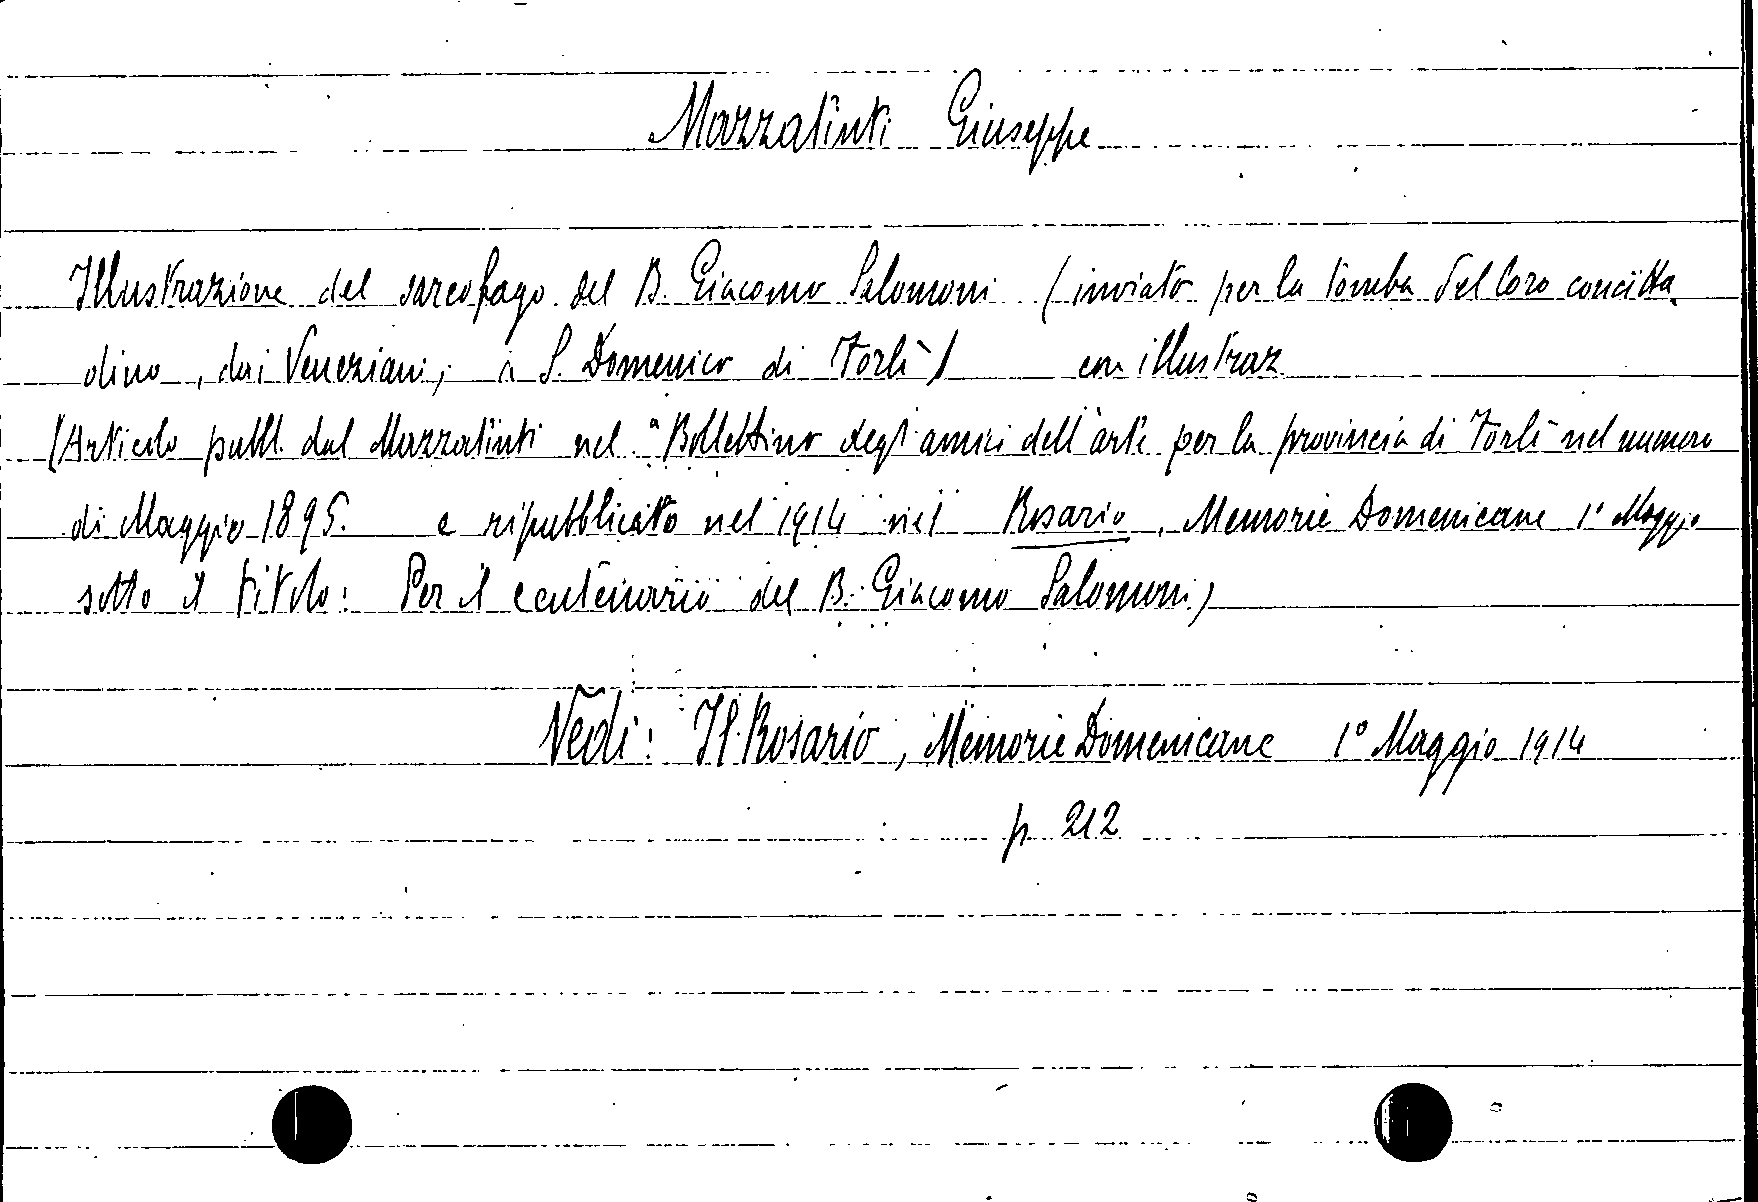 Mazzatinti Giuseppe
Illustrazione del sarcofago del B. Giacomo Salomoni (inviato per la tomba del loro concitta
dino, dai Veneziani, a S. Domenico di Forlì) con illustraz.
(Articolo pubbl. dal Mazzatinti nel "Bollettino degl'amici dell'arte per la provincia di Forlì" nel numero
di Maggio 1895. e ripubblicato nel 1914 nel Rosario, Memorie Domenicane 1° Maggio
sotto il titolo: Per il centenario del B. Giacomo Salomoni)
Vedi: Il Rosario, Memorie Domenicane 1° Maggio 1914
p 212